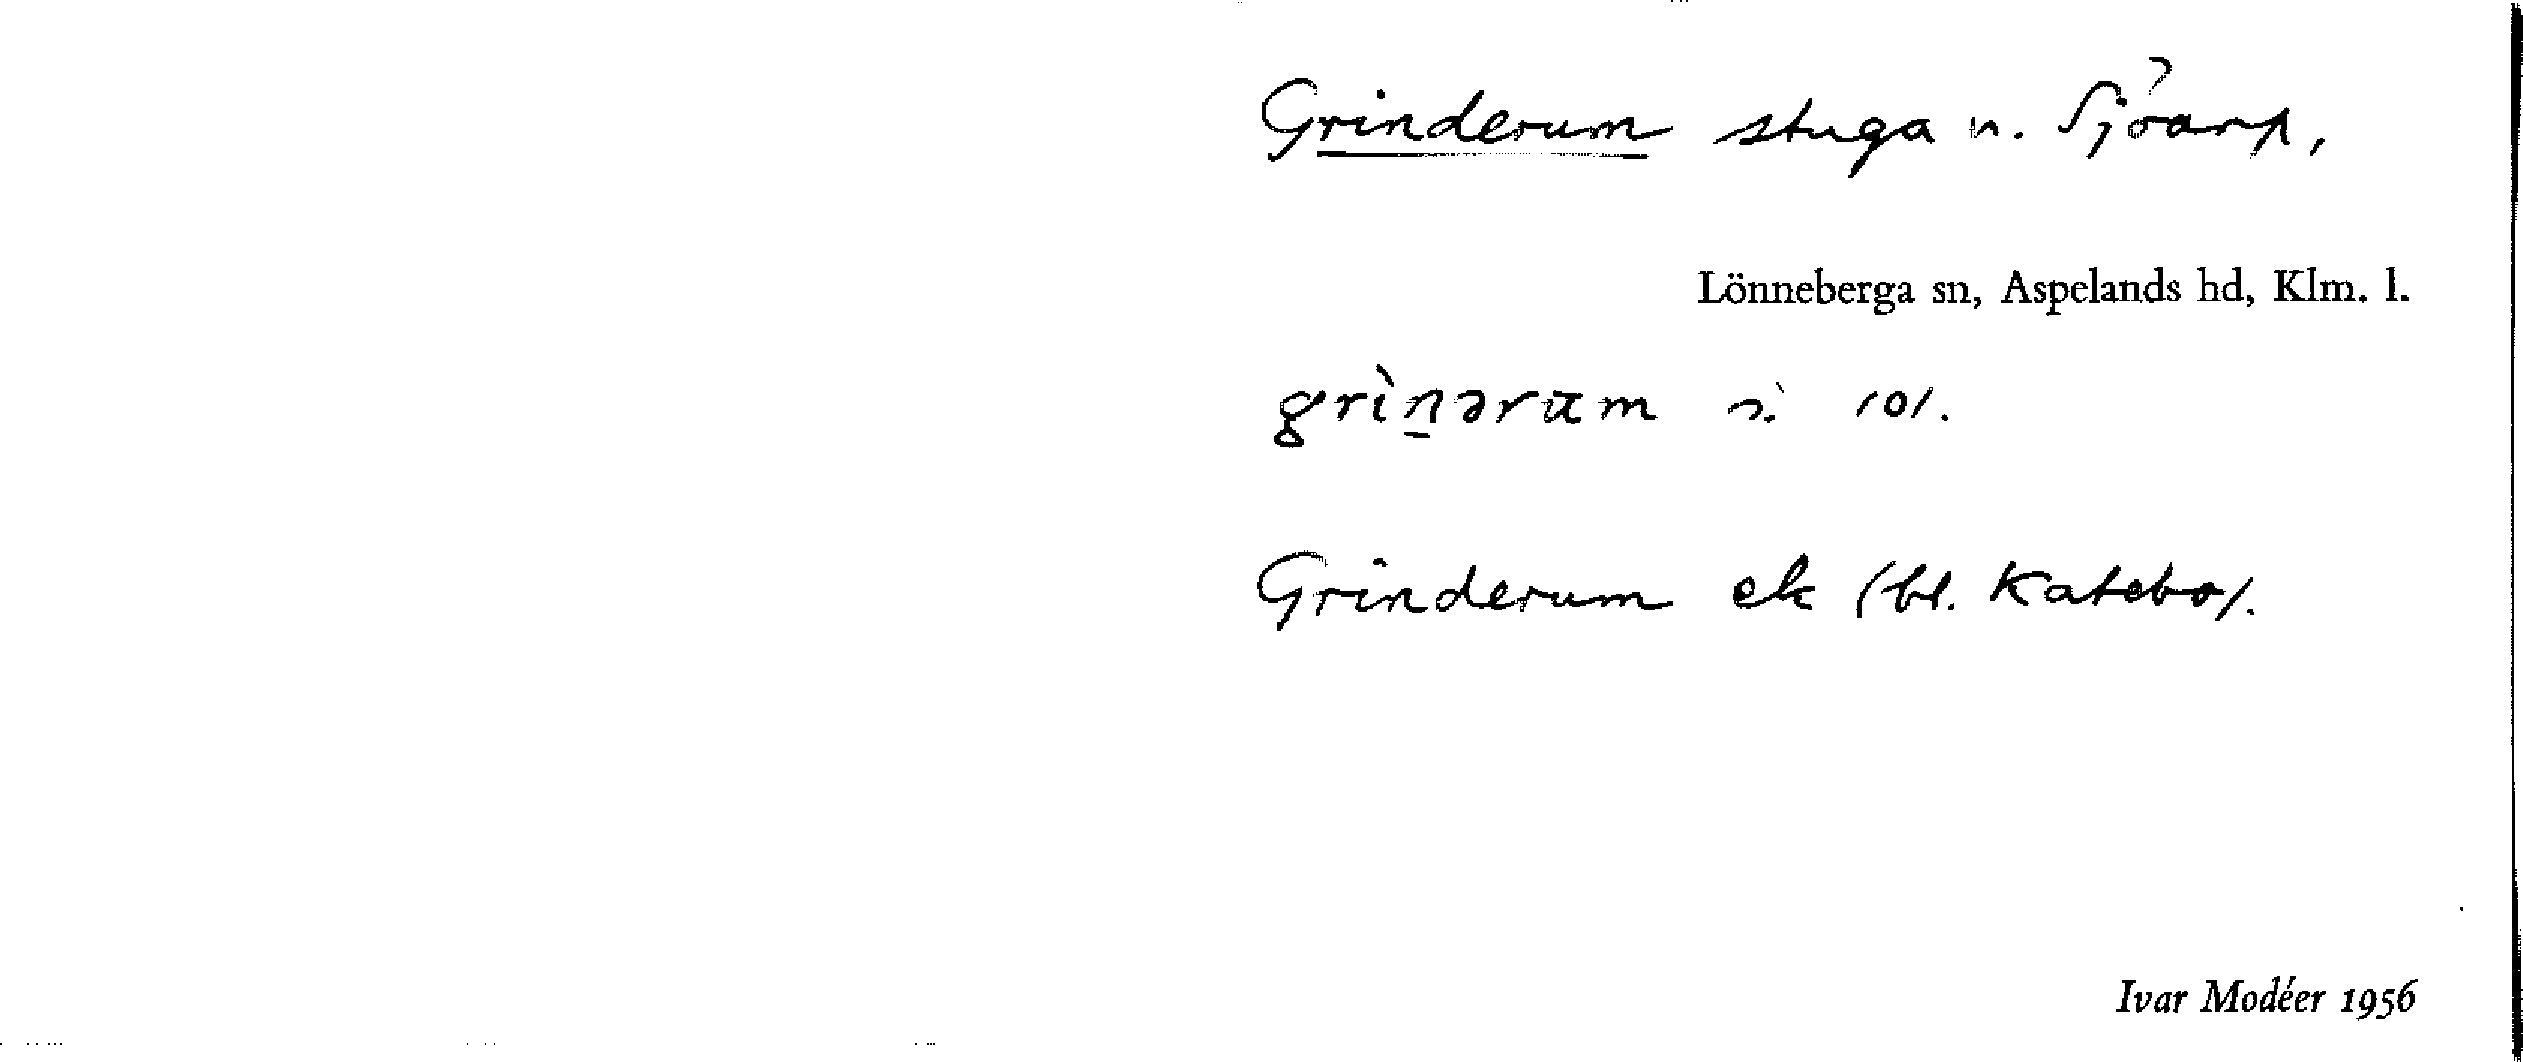 Grinderum stuga n. Sjöarp,
Lönneberga sn, Aspelands hd, Klm. l.
grìn̠ərum (o).
Grinderum ek (bl. Katebo).
Ivar Modéer 1956